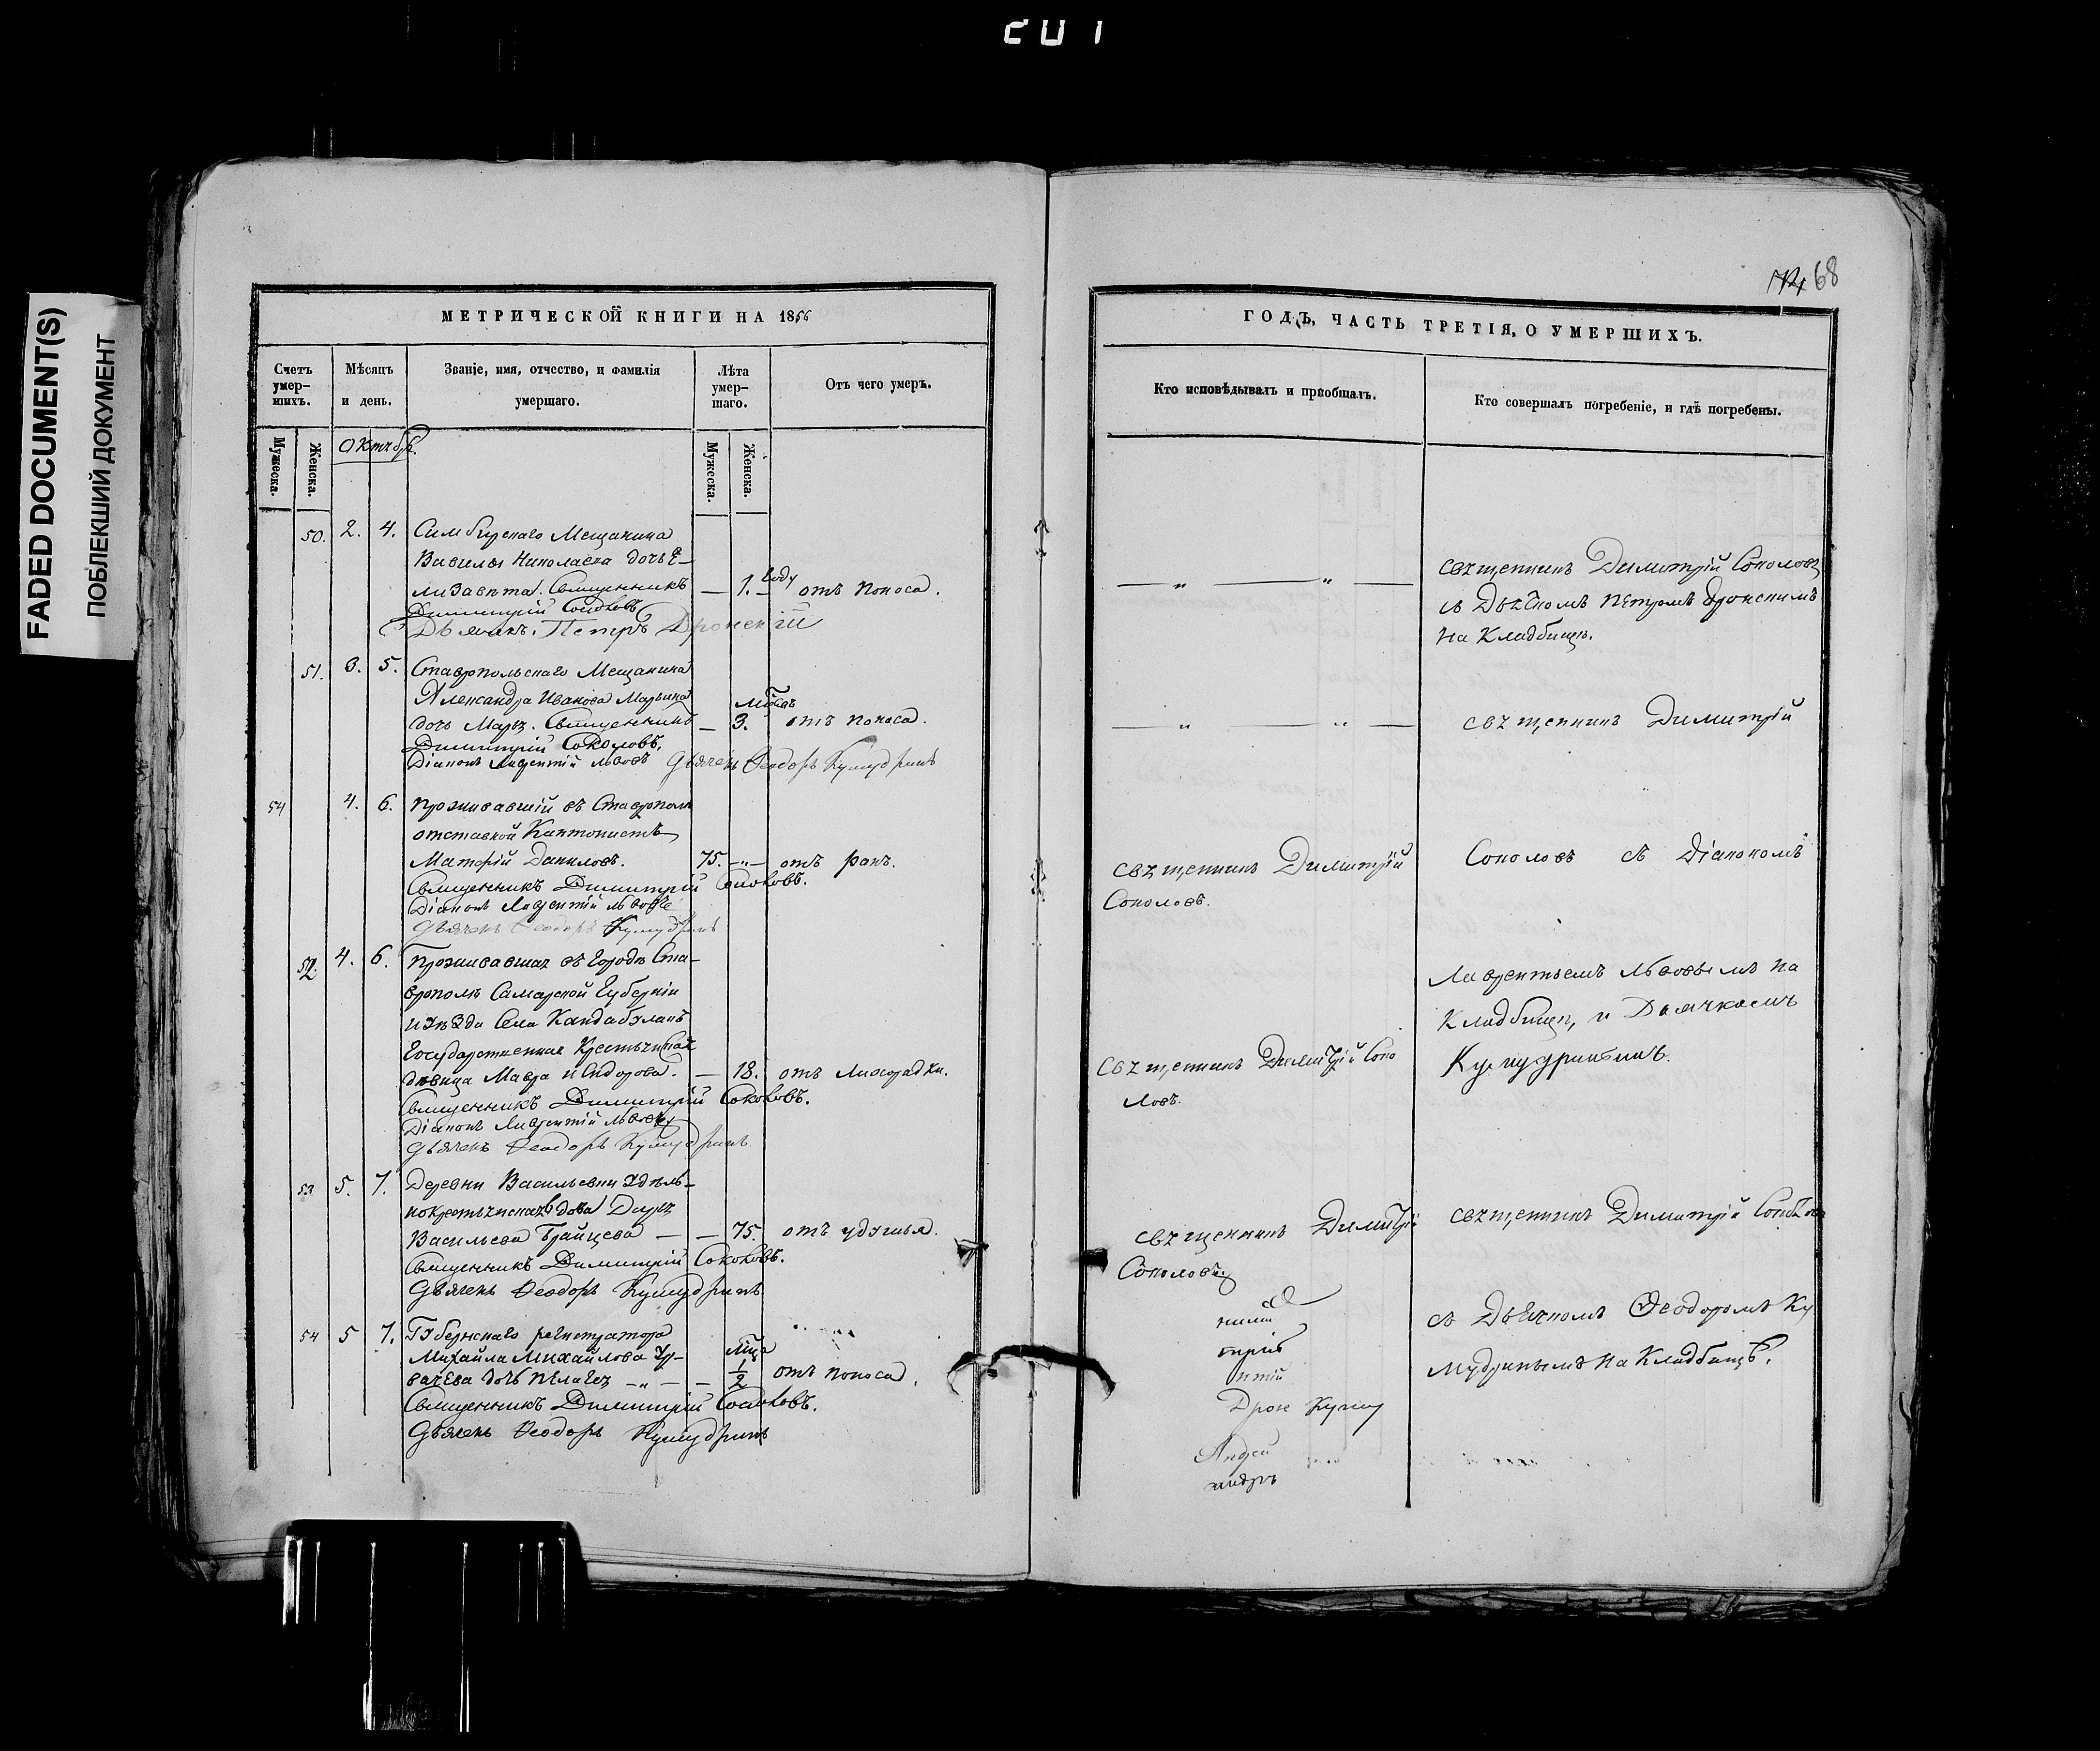 201
FADED DOCUMENT(S)
ПОБЛЕКШИЙ ДОКУМЕНТ
МЕТРИЧЕСКОЙ КНИГИ НА 1856
Счетъ умер-шихъ.
Мѣсяцъ и день.
Званіе, имя, отчество, и фамилія умершаго.
Лѣта умер-шаго.
Отъ чего умеръ.
Мужеска.
Женска.
Мужеска.
Женска.
50. 2. 4. Симбирскаго Мещанина
Василья Николаева дочь Е-
лизавета. Священникъ — 1. году отъ поноса.
Димитрій Соколовъ
Дьячекъ Петръ Дронскій
51. 3. 5. Ставропольскаго Мещанина
Александра Иванова Марьина
дочь Марія. Священникъ — 3. отъ поноса.
Димитрій Соколовъ.
Діаконъ Лаврентій Львовъ Дьячекъ Ѳеодоръ Кумудринъ
54 4. 6. Проживавшій въ Ставрополѣ
отставной Кантонистъ
Даниловъ. 75. — отъ ранъ.
Священникъ Димитрій Соколовъ.
Діаконъ Лаврентій Львовъ
Дьячекъ Ѳеодоръ Кумудринъ
52. 4. 6. Проживавшая въ городѣ Ста-
врополѣ Самарской Губерніи
Села Кандабулакъ
Государственная Крестьянская
дѣвица Мавра Исидорова. — 18. отъ лихорадки.
Священникъ Димитрій Соколовъ.
Діаконъ Лаврентій Львовъ
Дьячекъ Ѳеодоръ Кумудринъ
53 5. 7. Деревни Васильевки удѣль-
но крестьянская вдова Дарья
Васильева — — 75. отъ удушья.
Священникъ Димитрій Соколовъ.
Дьячекъ Ѳеодоръ Кумудринъ
54 5 7. Губернскаго регистратора
Михайла Михайлова
дочь Пелагея — „ — — 1/2 отъ поноса.
Священникъ Димитрій Соколовъ.
Дьячекъ Ѳеодоръ Кумудринъ
68
ГОДЪ, ЧАСТЬ ТРЕТІЯ, О УМЕРШИХЪ.
Кто исповѣдывалъ и пріобщалъ.
Кто совершалъ погребеніе, и гдѣ погребены.
— „ — „ —
священникъ Димитрій Соколовъ
съ Дьячкомъ Петромъ Дронскимъ
на Кладбищѣ.
— „ — „ —
священникъ Димитрій
священникъ Димитрій
Соколовъ.
Соколовъ съ Діакономъ
Лаврентьемъ Львовымъ на
Кладбищѣ, и Дьячкомъ
Кумудринымъ.
священникъ Димитрій Соко
ловъ.
священникъ Димитрій
Соколовъ
священникъ Димитрій Соколовъ
съ Дьячкомъ Ѳеодоромъ Ку
мудринымъ на Кладбищѣ.